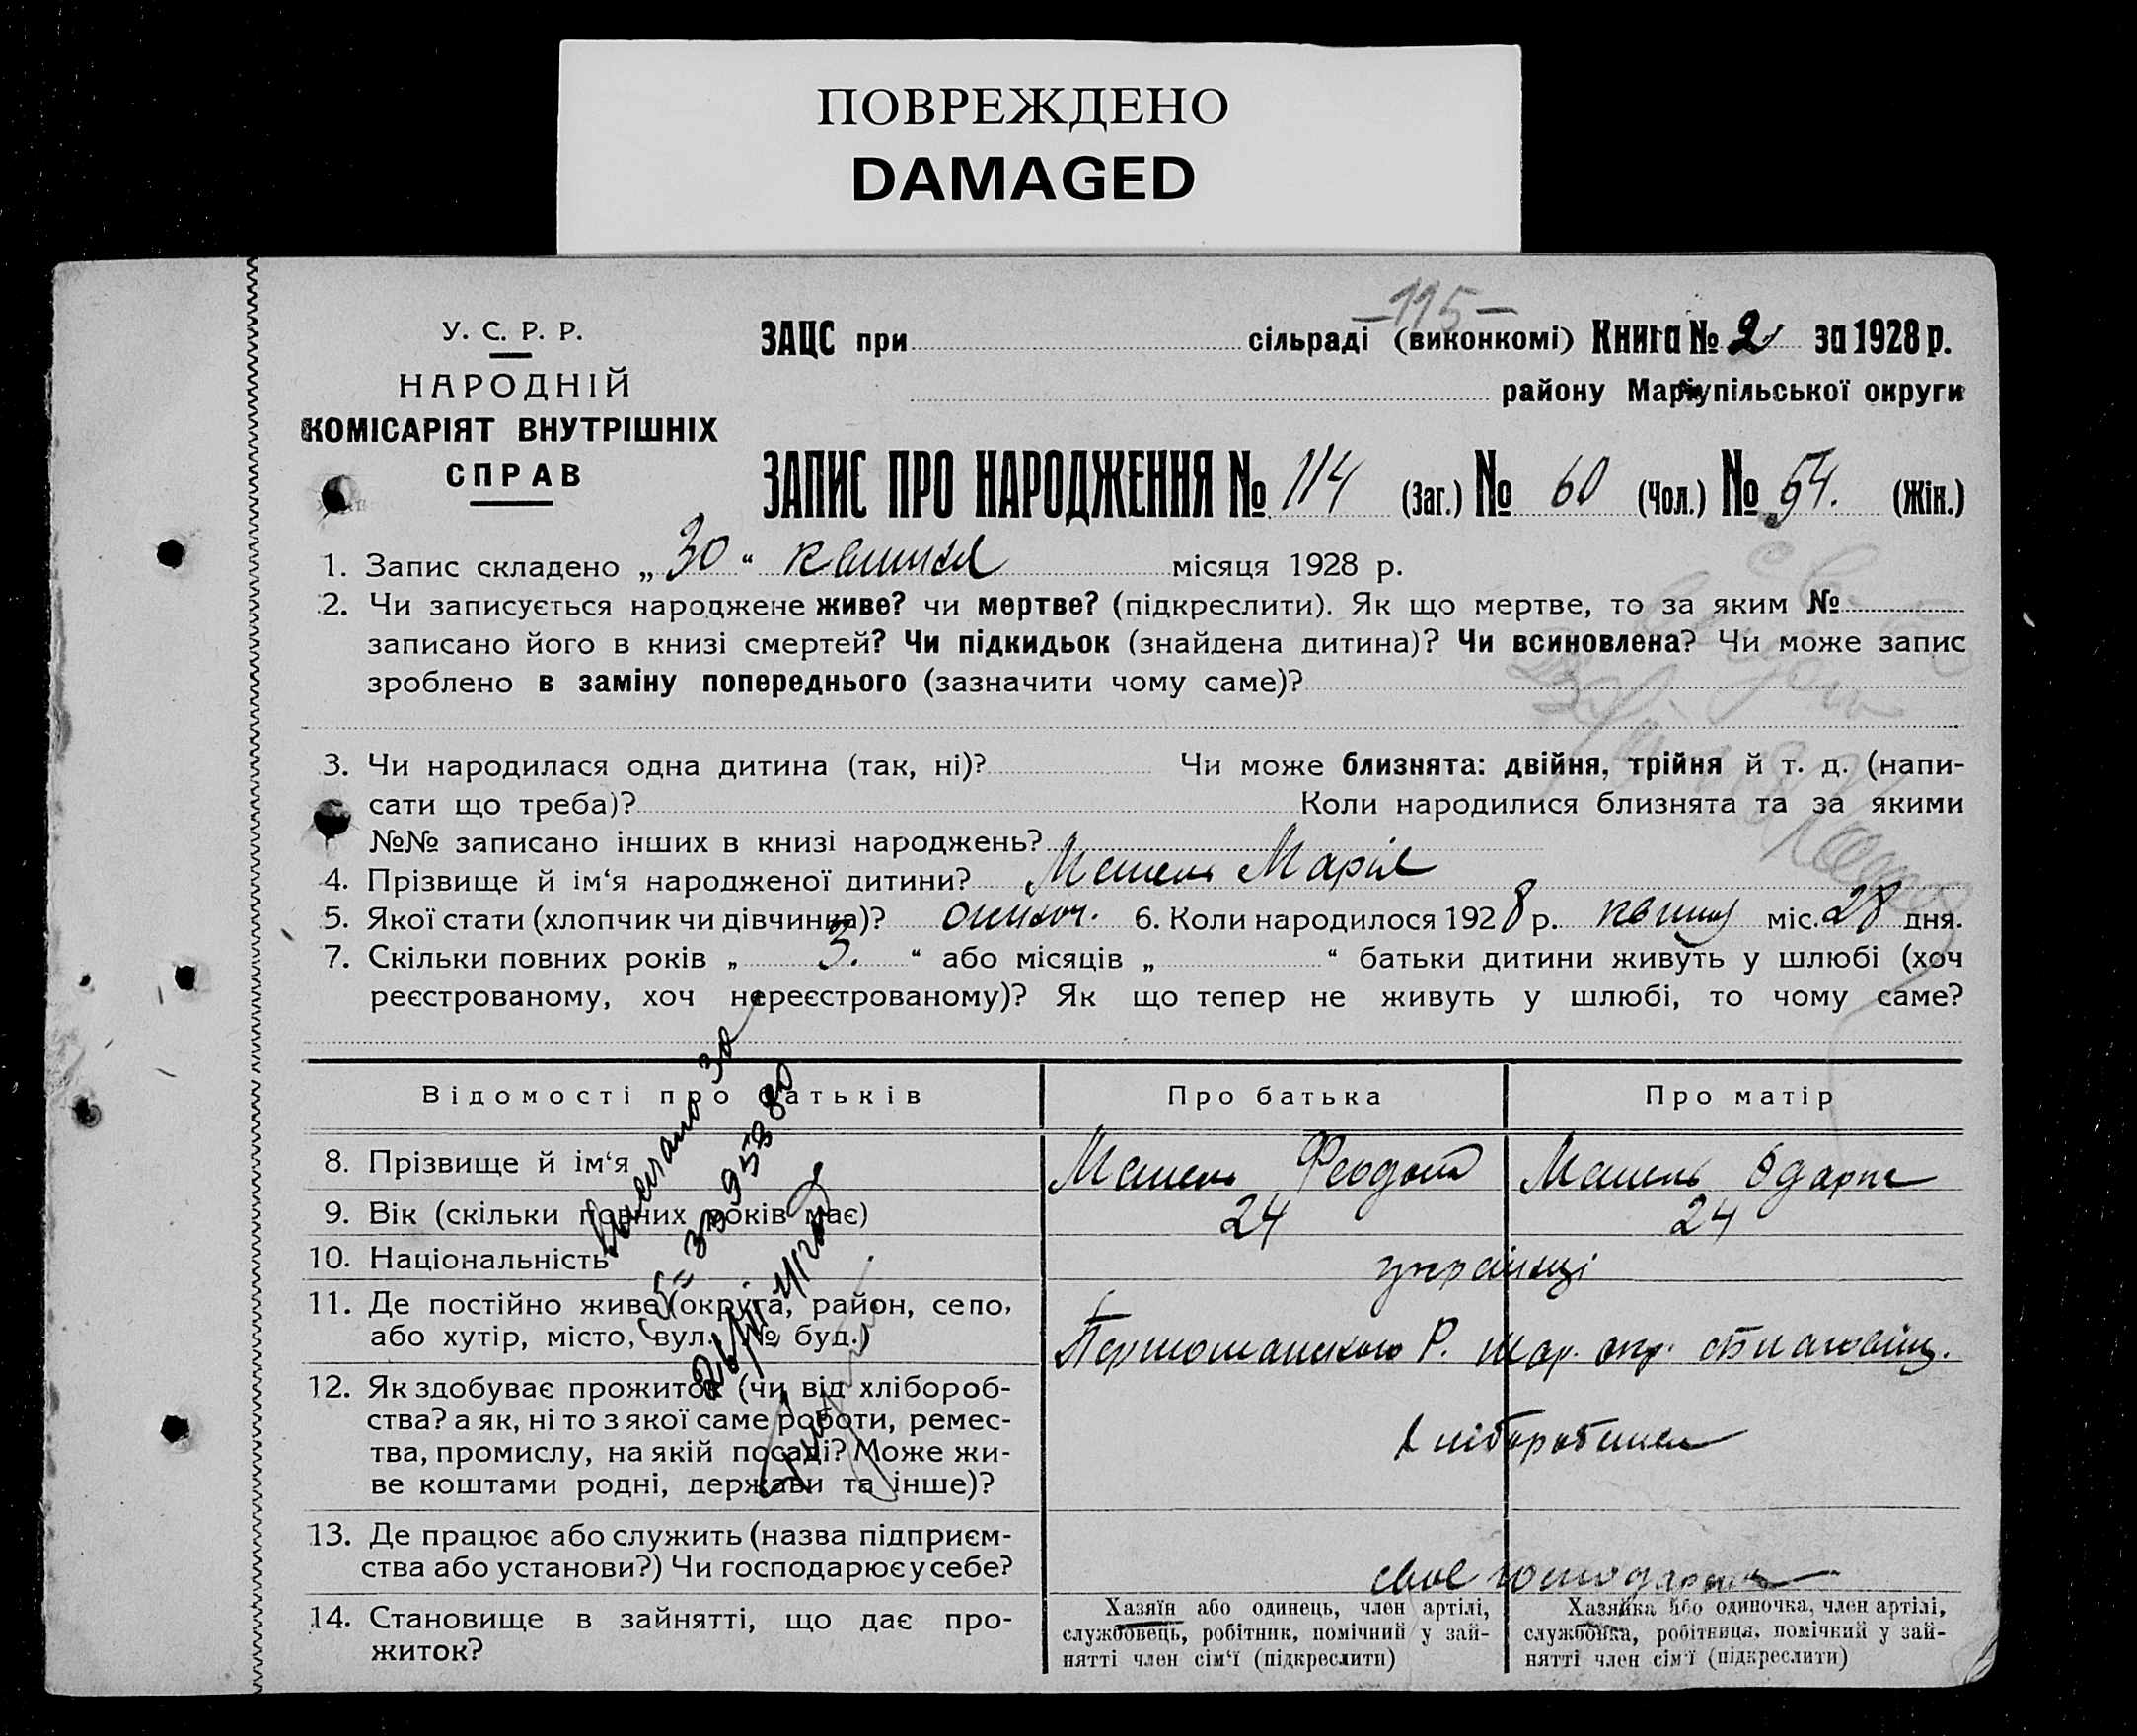 ПОВРЕЖДЕНО
DAMAGED
-115-
У. С. Р. Р.
НАРОДНІЙ
КОМІСАРІЯТ ВНУТРІШНІХ
СПРАВ
ЗАЦС при сільраді (виконкомі) Книга № 2 за 1928 р.
району Маріупільської округи
ЗАПИС ПРО НАРОДЖЕННЯ № 114 (Заг.) № 60 (Чол.) № 54. (Жін.)
1. Запис складено „ 30 “ квітня місяця 1928 р.
2. Чи записується народжене живе? чи мертве? (підкреслити). Як що мертве, то за яким №
записано його в книзі смертей? Чи підкидьок (знайдена дитина)? Чи всиновлена? Чи може запис
зроблено в заміну попереднього (зазначити чому саме)?
3. Чи народилася одна дитина (так, ні)? Чи може близнята: двійня, трійня й т. д. (напи-
сати що треба)? Коли народилися близнята та за якими
№№ записано інших в книзі народжень?
4. Прізвище й ім‘я народженої дитини? Марія
5. Якої стати (хлопчик чи дівчинка)? 6. Коли народилося 1928 р. міс. 28 дня.
7. Скільки повних років „ 3. “ або місяців „ “ батьки дитини живуть у шлюбі (хоч
реєстрованому, хоч нереєстрованому)? Як що тепер не живуть у шлюбі, то чому саме?
Відомості про батьків Про батька Про матір
8. Прізвище й ім‘я Феодот Одарка
9. Вік (скільки повних років має) 24 24
10. Національність українці
11. Де постійно живе (округа, район, село,
або хутір, місто, вул. № буд.) Р. Мар. окр.
12. Як здобуває прожиток (чи від хлібороб-
ства? а як, ні то з якої саме роботи, ремес-
тва, промислу, на якій посаді? Може жи-
ве коштами родні, держави та інше)?
13. Де працює або служить (назва підприєм-
ства або установи?) Чи господарює у себе? своє
14. Становище в зайнятті, що дає про-
житок?
Хазяїн або одинець, член артілі,
службовець, робітник, помічний у зай-
нятті член сім‘ї (підкреслити)
Хазяйка або одиночка, член артілі,
службовка, робітниця, помічний у зай-
нятті член сім‘ї (підкреслити)